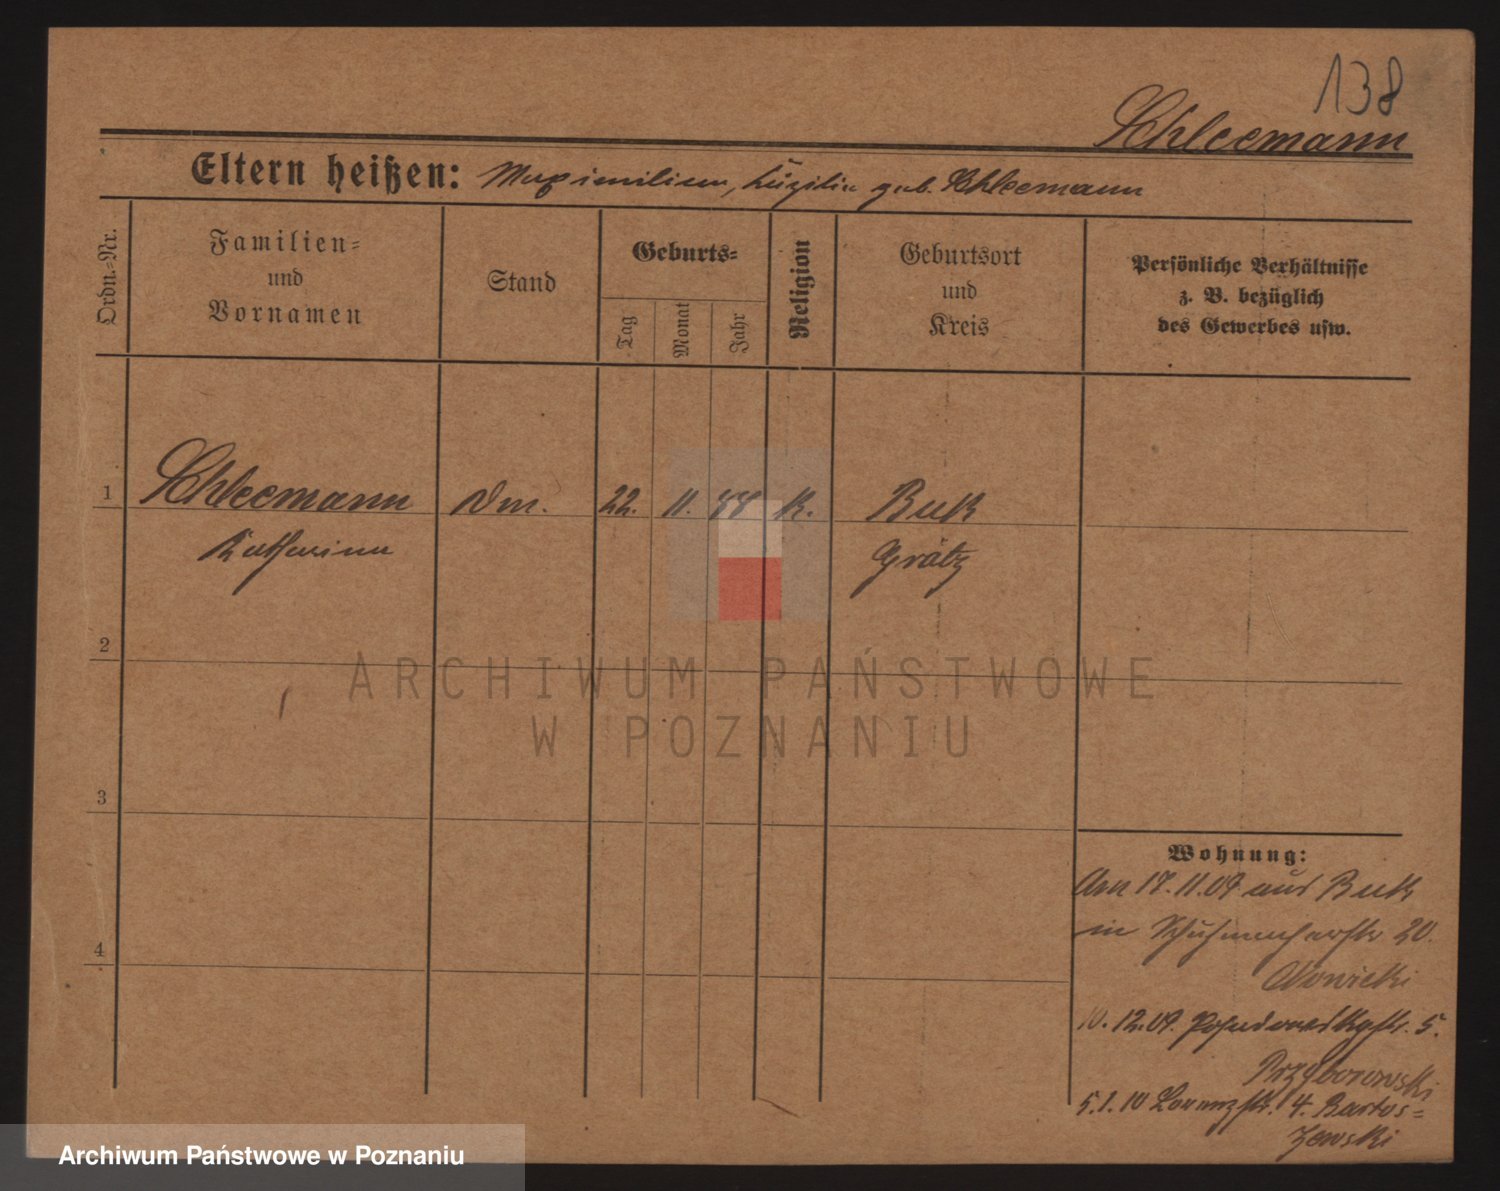 138
Schleemann
Eltern heißen: Maximilian, Cäzilie geb. Schleemann
Ordn.-Nr.
Familien-
und
Vornamen
Stand
Geburts-
Tag
Monat
Jahr
Religion
Geburtsort
und
Kreis
Persönliche Verhältnisse
z. B. bezüglich
des Gewerbes usw.
1
Schleemann
Dm.
22.
11.
44
K.
Buk
Katharina
Grätz
2
3
4
ARCHIWUM PAŃSTWOWE
W POZNANIU
Wohnung:
Am 17.11.09 aus Buk
in Schuhmacherstr 20.
Nowicki
10.12.09. 5.
Przyborowski
5.1.10 Lorenzstr. 4. Bartos=
zewski
Archiwum Państwowe w Poznaniu